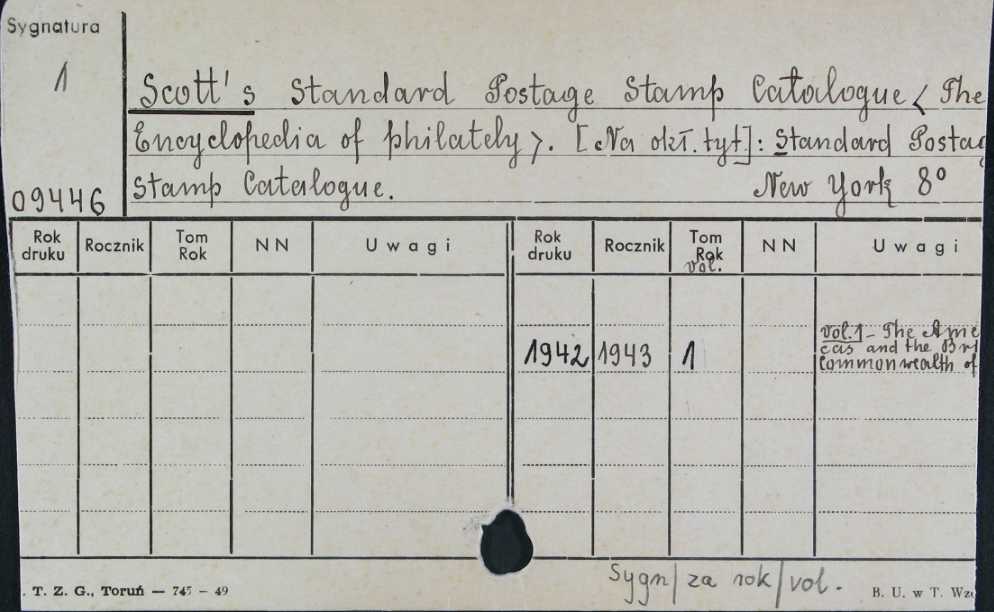 Sygnatura
1
Scott's Standard Postage Stamp Catalogue < The
Encyclopedia of philately >. [Na okł. tyt]: Standard Postag
Stamp Catalogue. New York 8°
09446
Rok druku Rocznik Tom Rok NN Uwagi Rok druku Rocznik Tom Rok vol. NN Uwagi
1942 1943 1
Vol.1 - The Ame
cas and the Bri
Commonwealth of
Sygn/ za rok/vol.
. T. Z. G., Toruń — 745 — 49 B. U. w T. Wz